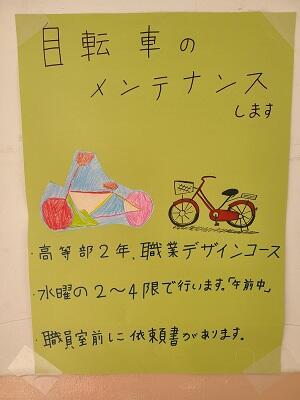 自転車の
メンテナンス
します
・高等部2年、職業デザインコース
・水曜の2〜4限で行います。「午前中」
・職員室前に依頼書があります。